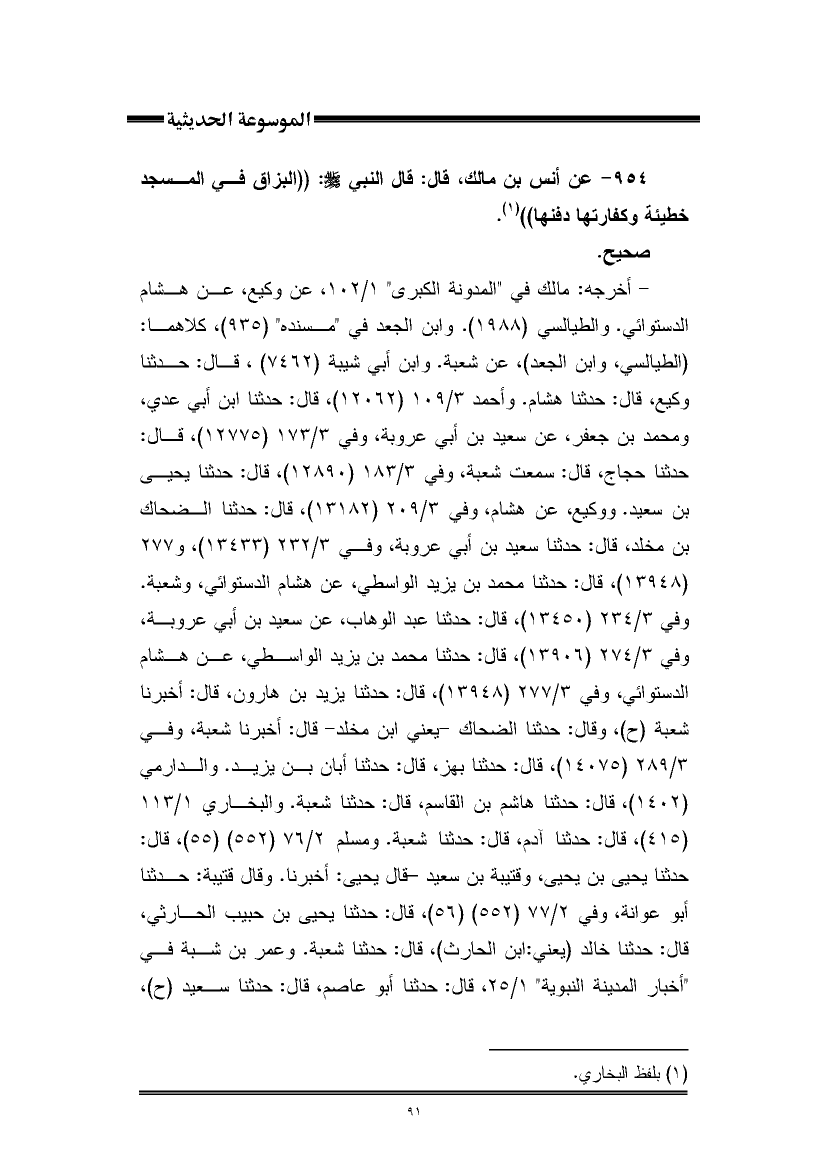 الموسوعة الحديثية
٩٥٤- عن أنس بن مالك، قال: قال النبي ﷺ: ((البزاق في المسجد
خطيئة وكفارتها دفنها))(١).
صحيح.
- أخرجه: مالك في "المدونة الكبرى" ١٠٢/١، عن وكيع، عن هشام
الدستوائي. والطيالسي (١٩٨٨). وابن الجعد في "مسنده" (٩٣٥)، كلاهما:
(الطيالسي، وابن الجعد)، عن شعبة. وابن أبي شيبة (٧٤٦٢) ، قال: حدثنا
وكيع، قال: حدثنا هشام. وأحمد ١٠٩/٣ (١٢٠٦٢)، قال: حدثنا ابن أبي عدي،
ومحمد بن جعفر، عن سعيد بن أبي عروبة، وفي ١٧٣/٣ (١٢٧٧٥)، قال:
حدثنا حجاج، قال: سمعت شعبة، وفي ١٨٣/٣ (١٢٨٩٠)، قال: حدثنا يحيى
بن سعيد. ووكيع، عن هشام، وفي ٢٠٩/٣ (١٣١٨٢)، قال: حدثنا الضحاك
بن مخلد، قال: حدثنا سعيد بن أبي عروبة، وفي ٢٣٢/٣ (١٣٤٣٣)، و٢٧٧
(١٣٩٤٨)، قال: حدثنا محمد بن يزيد الواسطي، عن هشام الدستوائي، وشعبة.
وفي ٢٣٤/٣ (١٣٤٥٠)، قال: حدثنا عبد الوهاب، عن سعيد بن أبي عروبة،
وفي ٢٧٤/٣ (١٣٩٠٦)، قال: حدثنا محمد بن يزيد الواسطي، عن هشام
الدستوائي، وفي ٢٧٧/٣ (١٣٩٤٨)، قال: حدثنا يزيد بن هارون، قال: أخبرنا
شعبة (ح)، وقال: حدثنا الضحاك -يعني ابن مخلد- قال: أخبرنا شعبة، وفي
٢٨٩/٣ (١٤٠٧٥)، قال: حدثنا بهز، قال: حدثنا أبان بن يزيد. والدارمي
(١٤٠٢)، قال: حدثنا هاشم بن القاسم، قال: حدثنا شعبة. والبخاري ١١٣/١
(٤١٥)، قال: حدثنا آدم، قال: حدثنا شعبة. ومسلم ٧٦/٢ (٥٥٢) (٥٥)، قال:
حدثنا يحيى بن يحيى، وقتيبة بن سعيد -قال يحيى: أخبرنا. وقال قتيبة: حدثنا
أبو عوانة، وفي ٧٧/٢ (٥٥٢) (٥٦)، قال: حدثنا يحيى بن حبيب الحارثي،
قال: حدثنا خالد (يعني:ابن الحارث)، قال: حدثنا شعبة. وعمر بن شبة في
"أخبار المدينة النبوية" ٢٥/١، قال: حدثنا أبو عاصم، قال: حدثنا سعيد (ح)،
(١) بلفظ البخاري.
٩١